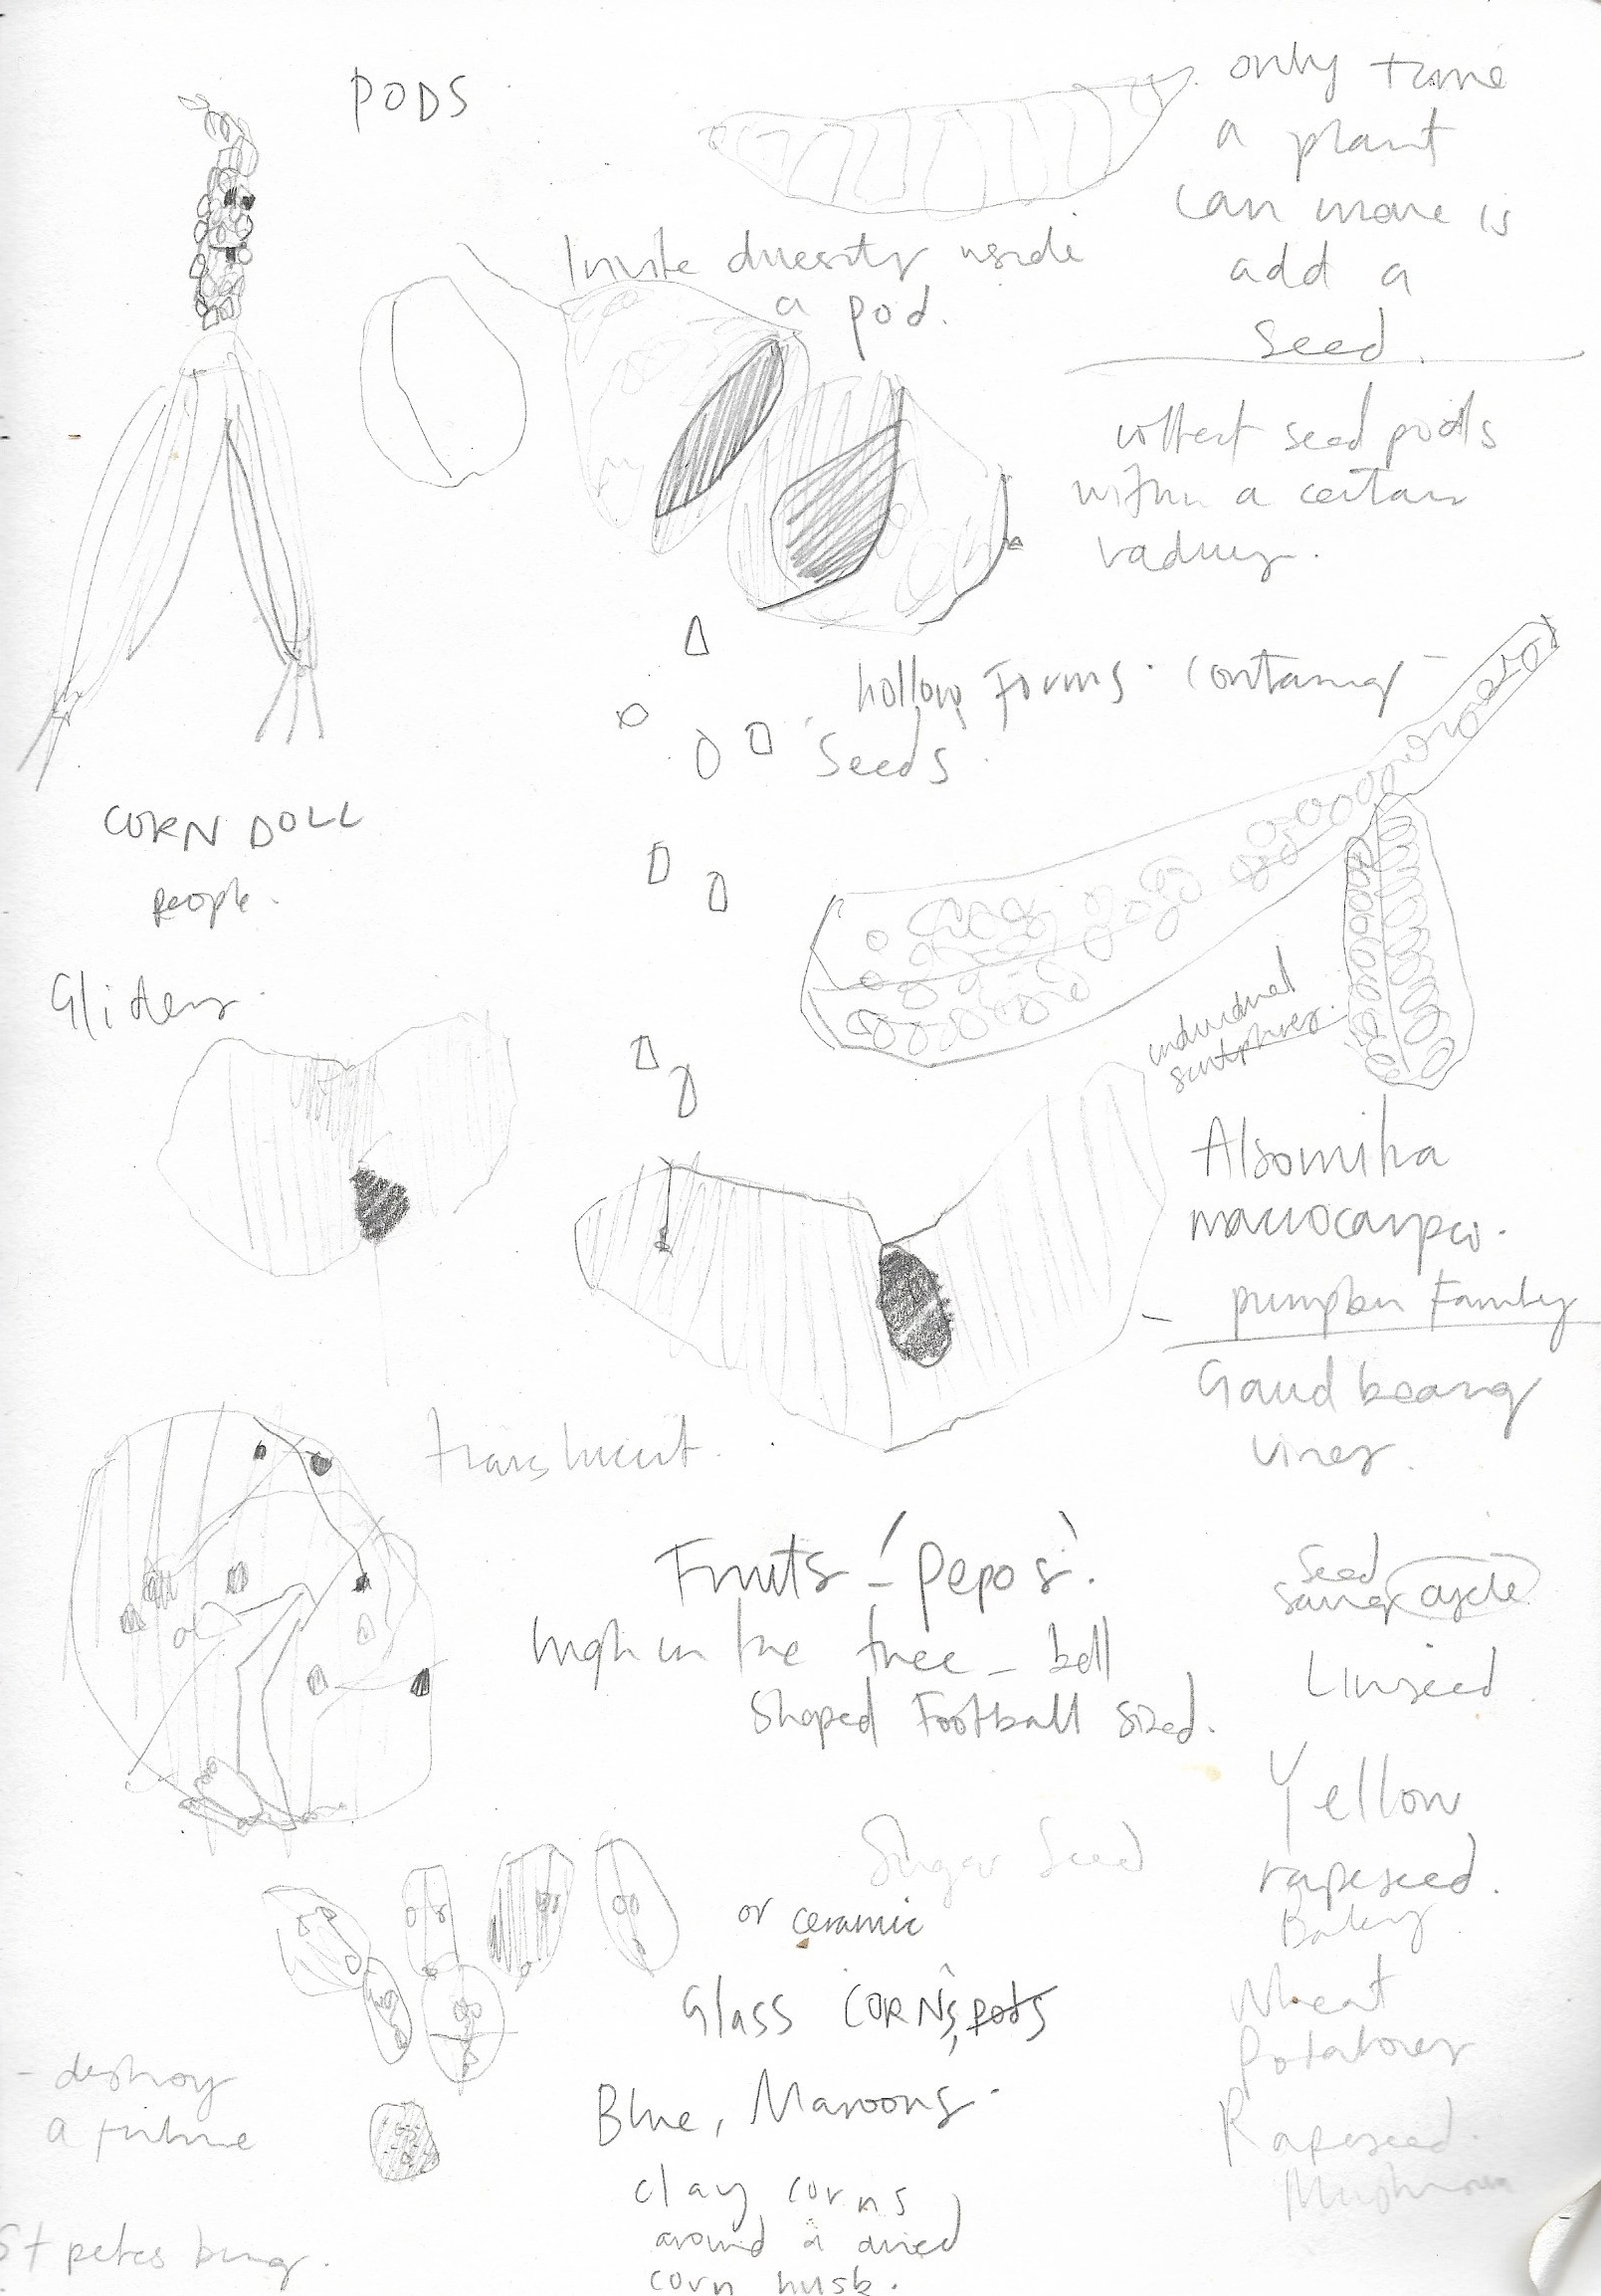 PODS
only time
a plant
can move is
add a
Seed.
Invite diversity inside
a pod.
collect seed pods
within a certain
radius.
hollow forms. containing
Seeds.
CORN DOLL
People.
Gliders.
individual
sculptures.
Alsomitra
macrocarpa.
pumpkin Family
Gourd bearing
vines.
translucent.
Fruits - 'Pepos'.
high in the tree - bell
Shaped Football sized.
Seed
saving cycle
Linseed
Yellow
rapeseed.
Barley
Wheat
Potatoes
Rapeseed.
Mushroom
Sugar Seed
or ceramic
Glass CORNS, pots
Blue, Maroons.
clay corns
around a dried
corn husk.
- destroy
a future
St petersburg.